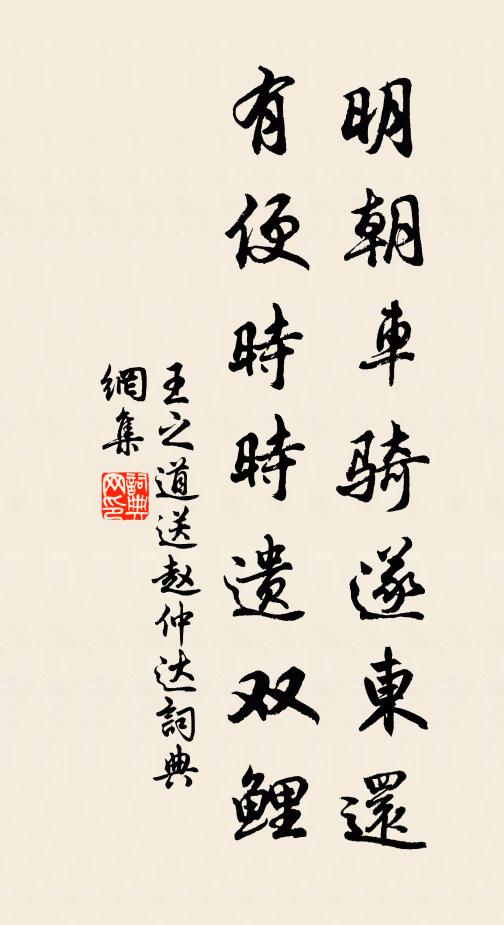 明朝車骑遂東還
有便時時遗双鲤
王之道送赵仲达詞典
網集
詞典
网印